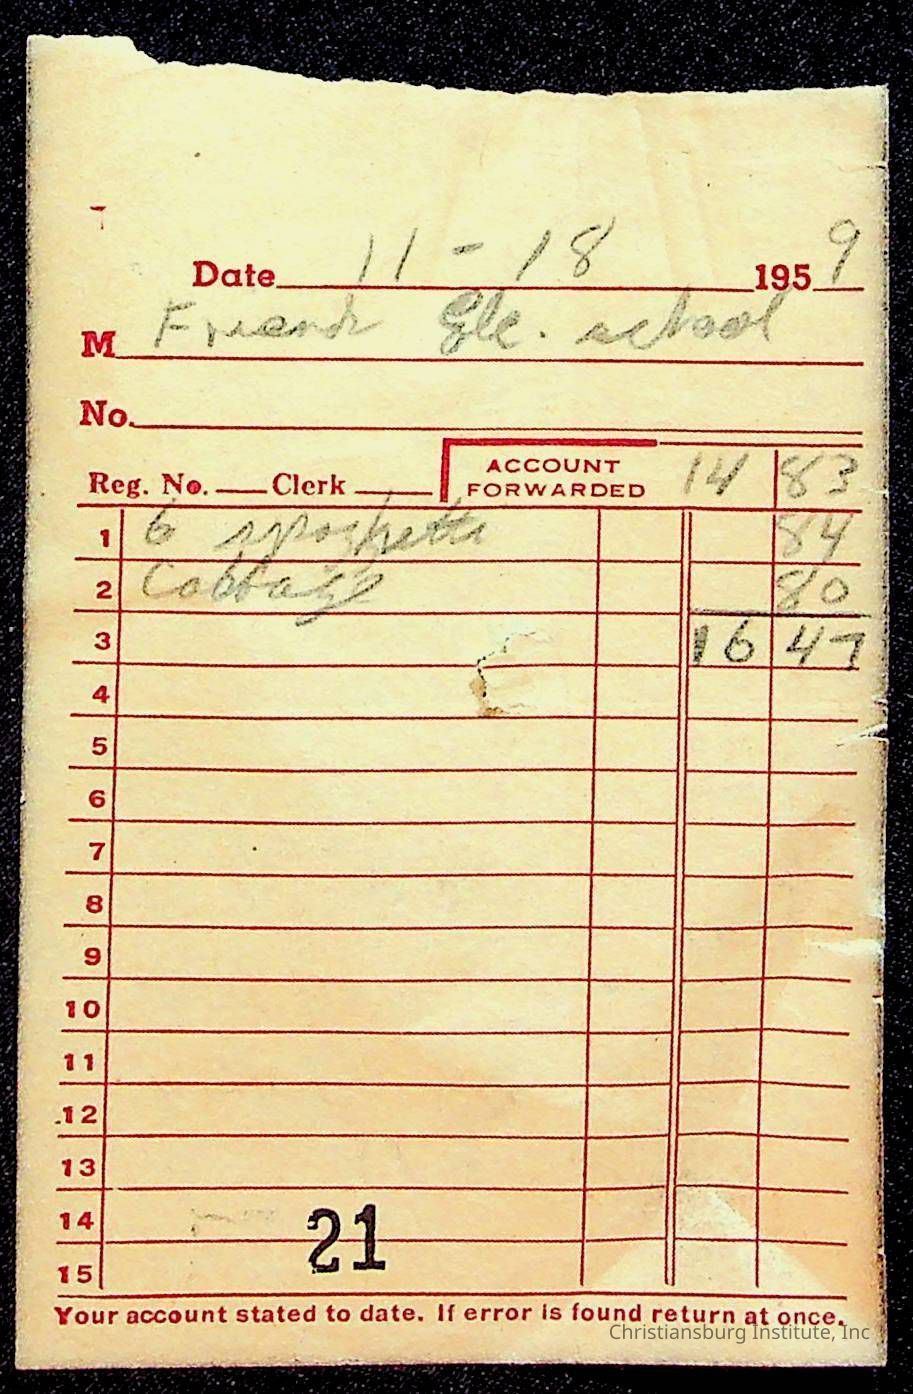 Date 11 - 18 1959
M Friends Ele. school
No.
Reg. No. Clerk ACCOUNT FORWARDED 14 83
1 6 spaghetti 84
2 Cabbage 80
3 16 47
4
5
6
7
8
9
10
11
12
13
14
21
15
Your account stated to date. If error is found return at once.
Christiansburg Institute, Inc